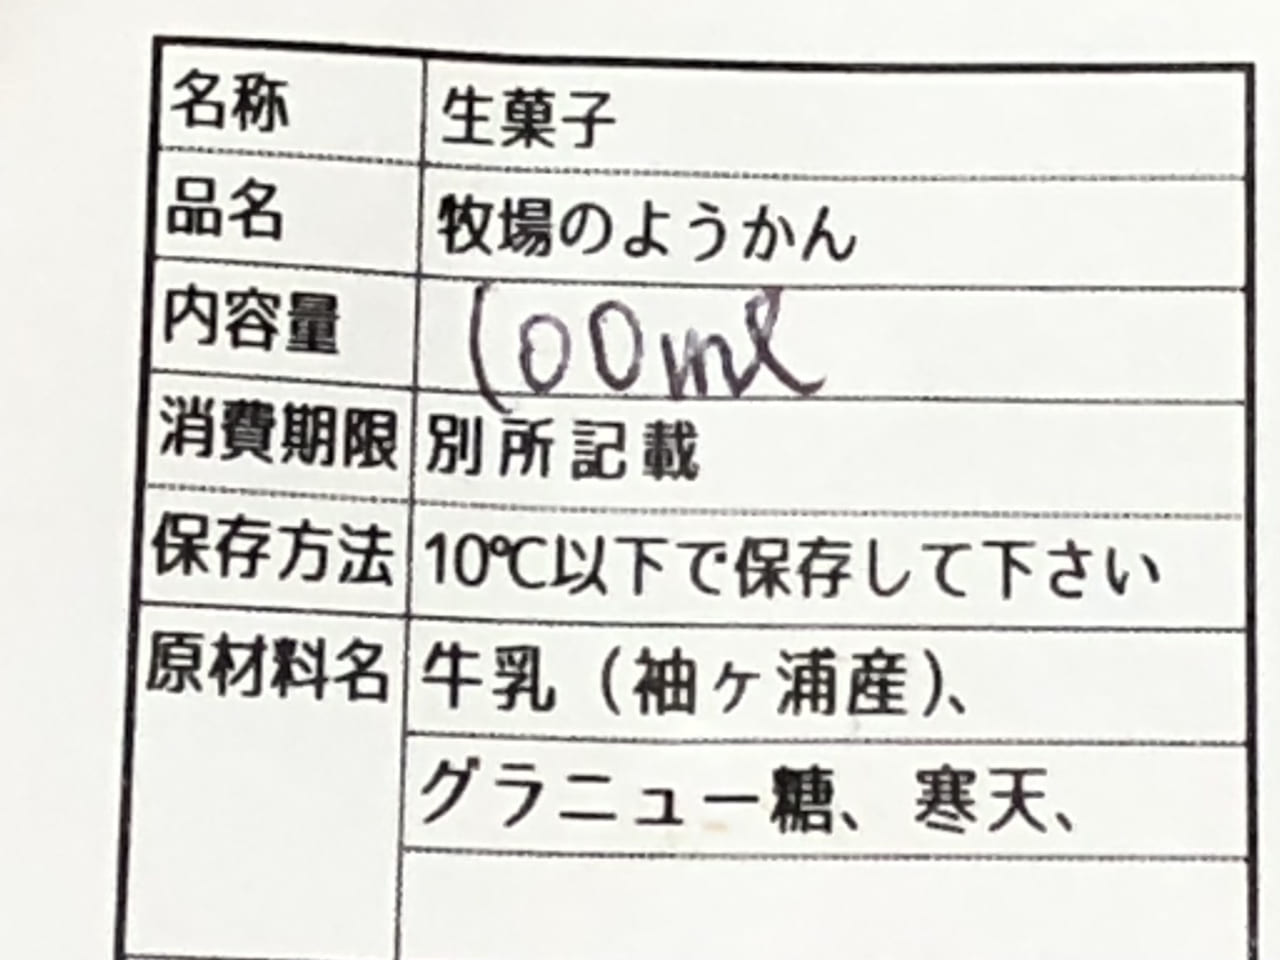 名称 生菓子
品名 牧場のようかん
内容量 100ml
消費期限 別所記載
保存方法 10℃以下で保存して下さい
原材料名 牛乳（袖ヶ浦産）、
グラニュー糖、寒天、